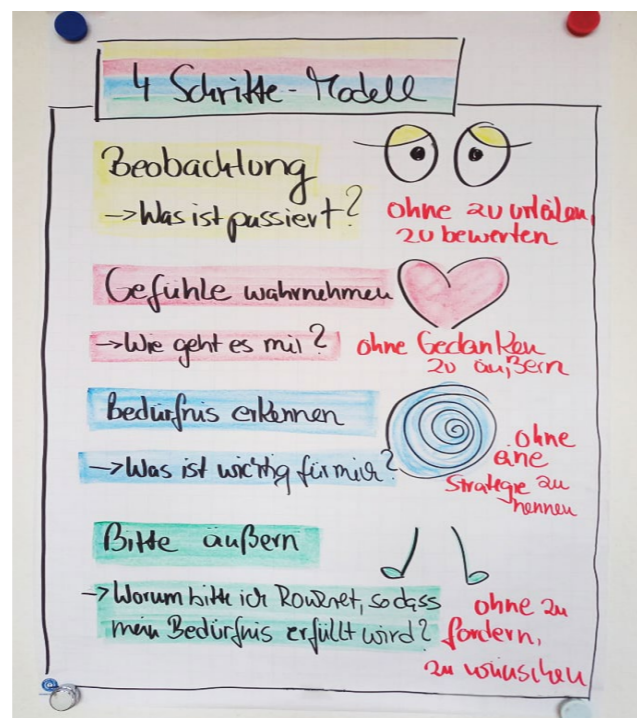 4 Schritte-Modell
Beobachtung
→ Was ist passiert?
ohne zu urteilen,
zu bewerten
Gefühle wahrnehmen
→ Wie geht es mir?
ohne Gedanken
zu äußern
Bedürfnis erkennen
→ Was ist wichtig für mich?
ohne
eine
Strategie zu
nennen
Bitte äußern
→ Worum bitte ich konkret, sodass
mein Bedürfnis erfüllt wird?
ohne zu
fordern,
zu wünschen